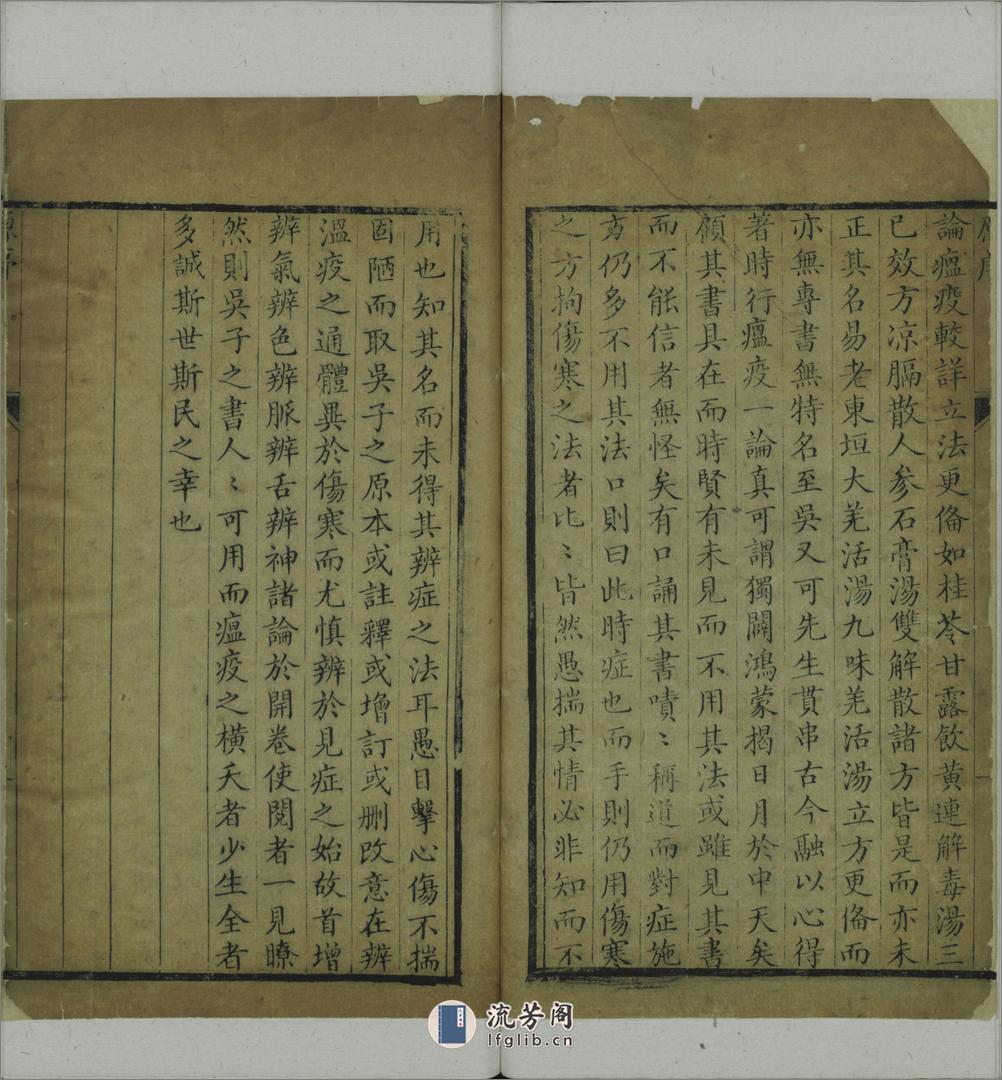 論瘟疫較詳立法更俻如桂苓甘露飲黃連解毒湯三
已效方凉膈散人参石膏湯雙解散諸方皆是而亦未
正其名易老東垣大羌活湯九味羌活湯立方更俻而
亦無專書無特名至吳又可先生貫串古今融以心得
著時行瘟疫一論真可謂獨闢鴻蒙揭日月於中天矣
顧其書具在而時賢有未見而不用其法或雖見其書
而不能信者無怪矣有口誦其書嘖〻稱道而對症施
方仍多不用其法口則曰此時症也而手則仍用傷寒
之方拘傷寒之法者比〻皆然愚揣其情必非知而不
用也知其名而未得其辨症之法耳愚目擊心傷不揣
固陋而取吳子之原本或註釋或增訂或删改意在辨
溫疫之通體異於傷寒而尤慎辨於見症之始故首增
辨氣辨色辨脈辨舌辨神諸論於開卷使閱者一見瞭
然則吳子之書人〻可用而瘟疫之橫夭者少生全者
多誠斯世斯民之幸也
流芳阁
lfglib.cn